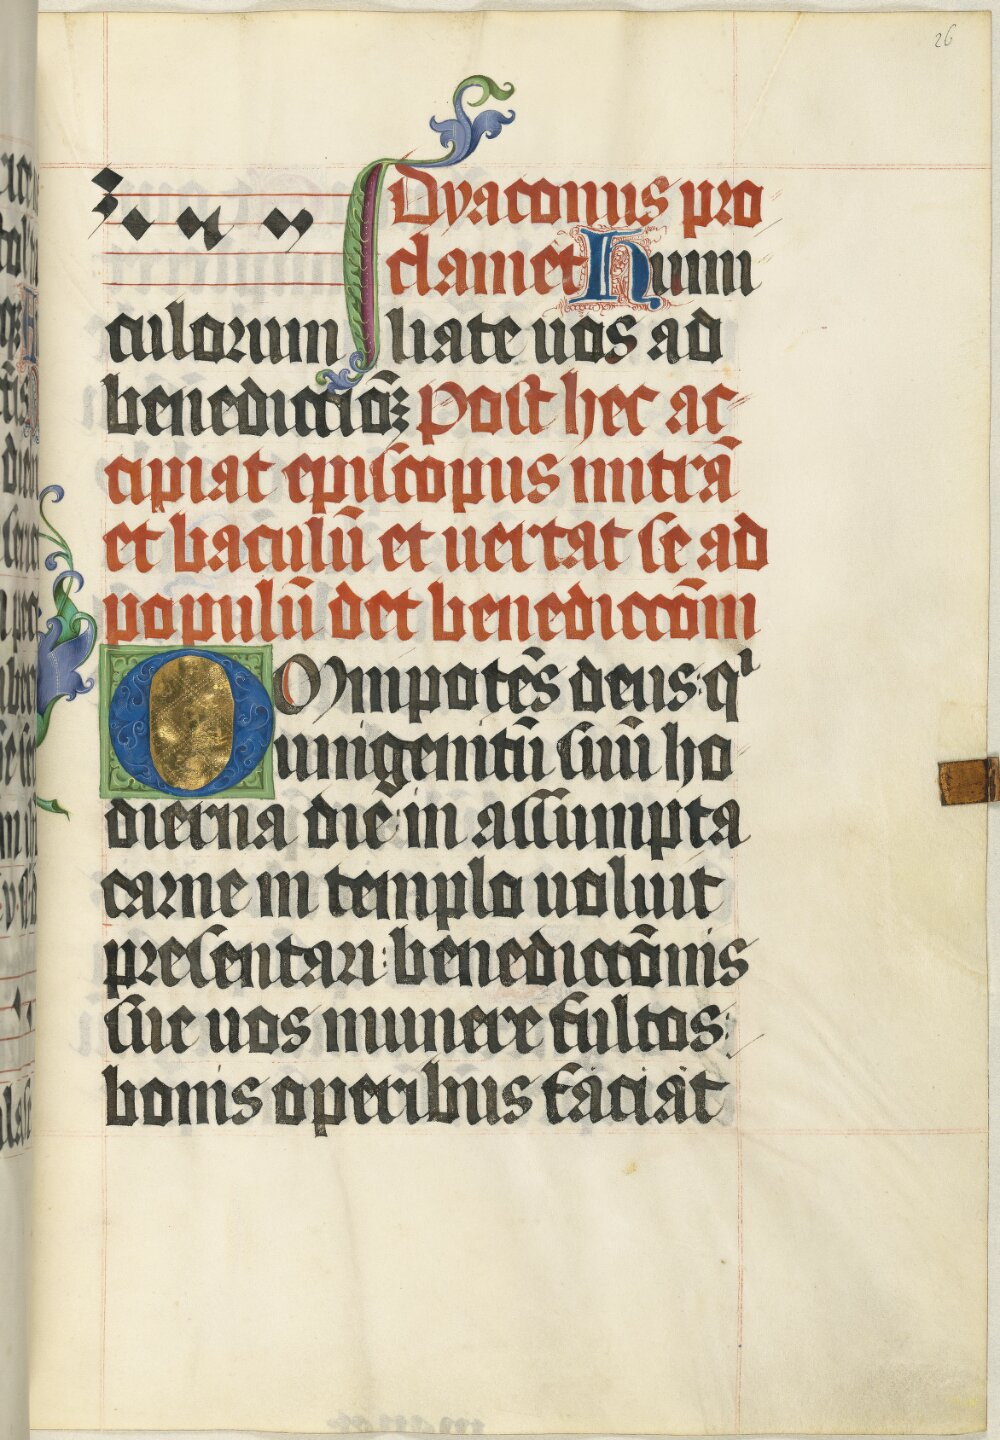 26
Dyaconus pro
clamet Humi
culorum liate uos ad
benedictioꝫ Post hec ac
cipiat episcopus mitrā
et baculū et uertat se ad
populū det benediccōm
Omnipotēs deus qͥ
unigenitū suū ho
dierna die in assumpta
carne in templo uoluit
presentari: benediccōnis
sue uos munere fultos:
bonis operibus faciat